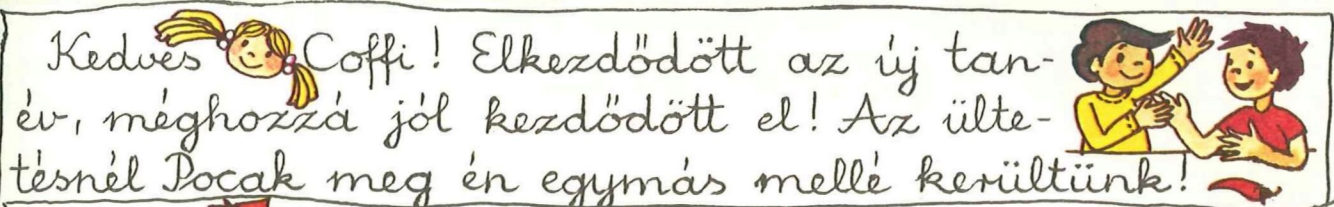 Kedves Coffi! Elkezdődött az új tan-
év, méghozzá jól kezdődött el! Az ülte-
tésnél Pocak meg én egymás mellé kerültünk!